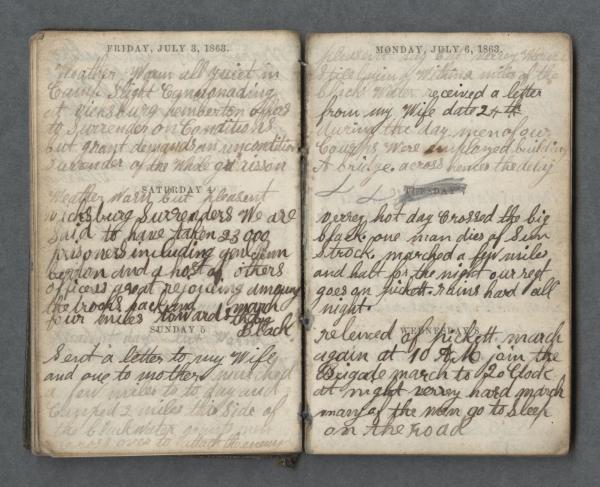 FRIDAY, JULY 3, 1863.
Weather Warm all quiet in
Camp Slight Cannonading
at vicksburg pemberton offers
to Surrender on Conditions
but grant demands an unconditional
Surrender of the Whole garrison
SATURDAY 4
Weather Warm but pleasent
vicksburg Surrenders We are
Said to have taken 23000
prisoners including gen
and a host of others
officers great rejoicing among
the troops pack and march
four miles toward the big
Black
SUNDAY 5
Sent a letter to my Wife
and one to mother marched
a few miles to day and
Camped 2 miles this Side of
the black water our men
across over to attack the enemy
MONDAY, JULY 6, 1863.
pleasent day but verrey Warm
Still miles of the
black Water received a letter
from my Wife date 24th
during the day men of our
Were imployed building
A bridge across hence the delay
TUESDAY 7
verrey hot day Crossed the big
black one man dies of Sun
Strock marched a few miles
and halt for the night our regt
goes on pickett rains hard all
night.
WEDNESDAY 8
releived of pickett march
again at 10 A.M join the
Brigade march to 2 o Clock
at night verrey hard march
many of the men go to Sleep
on the Road